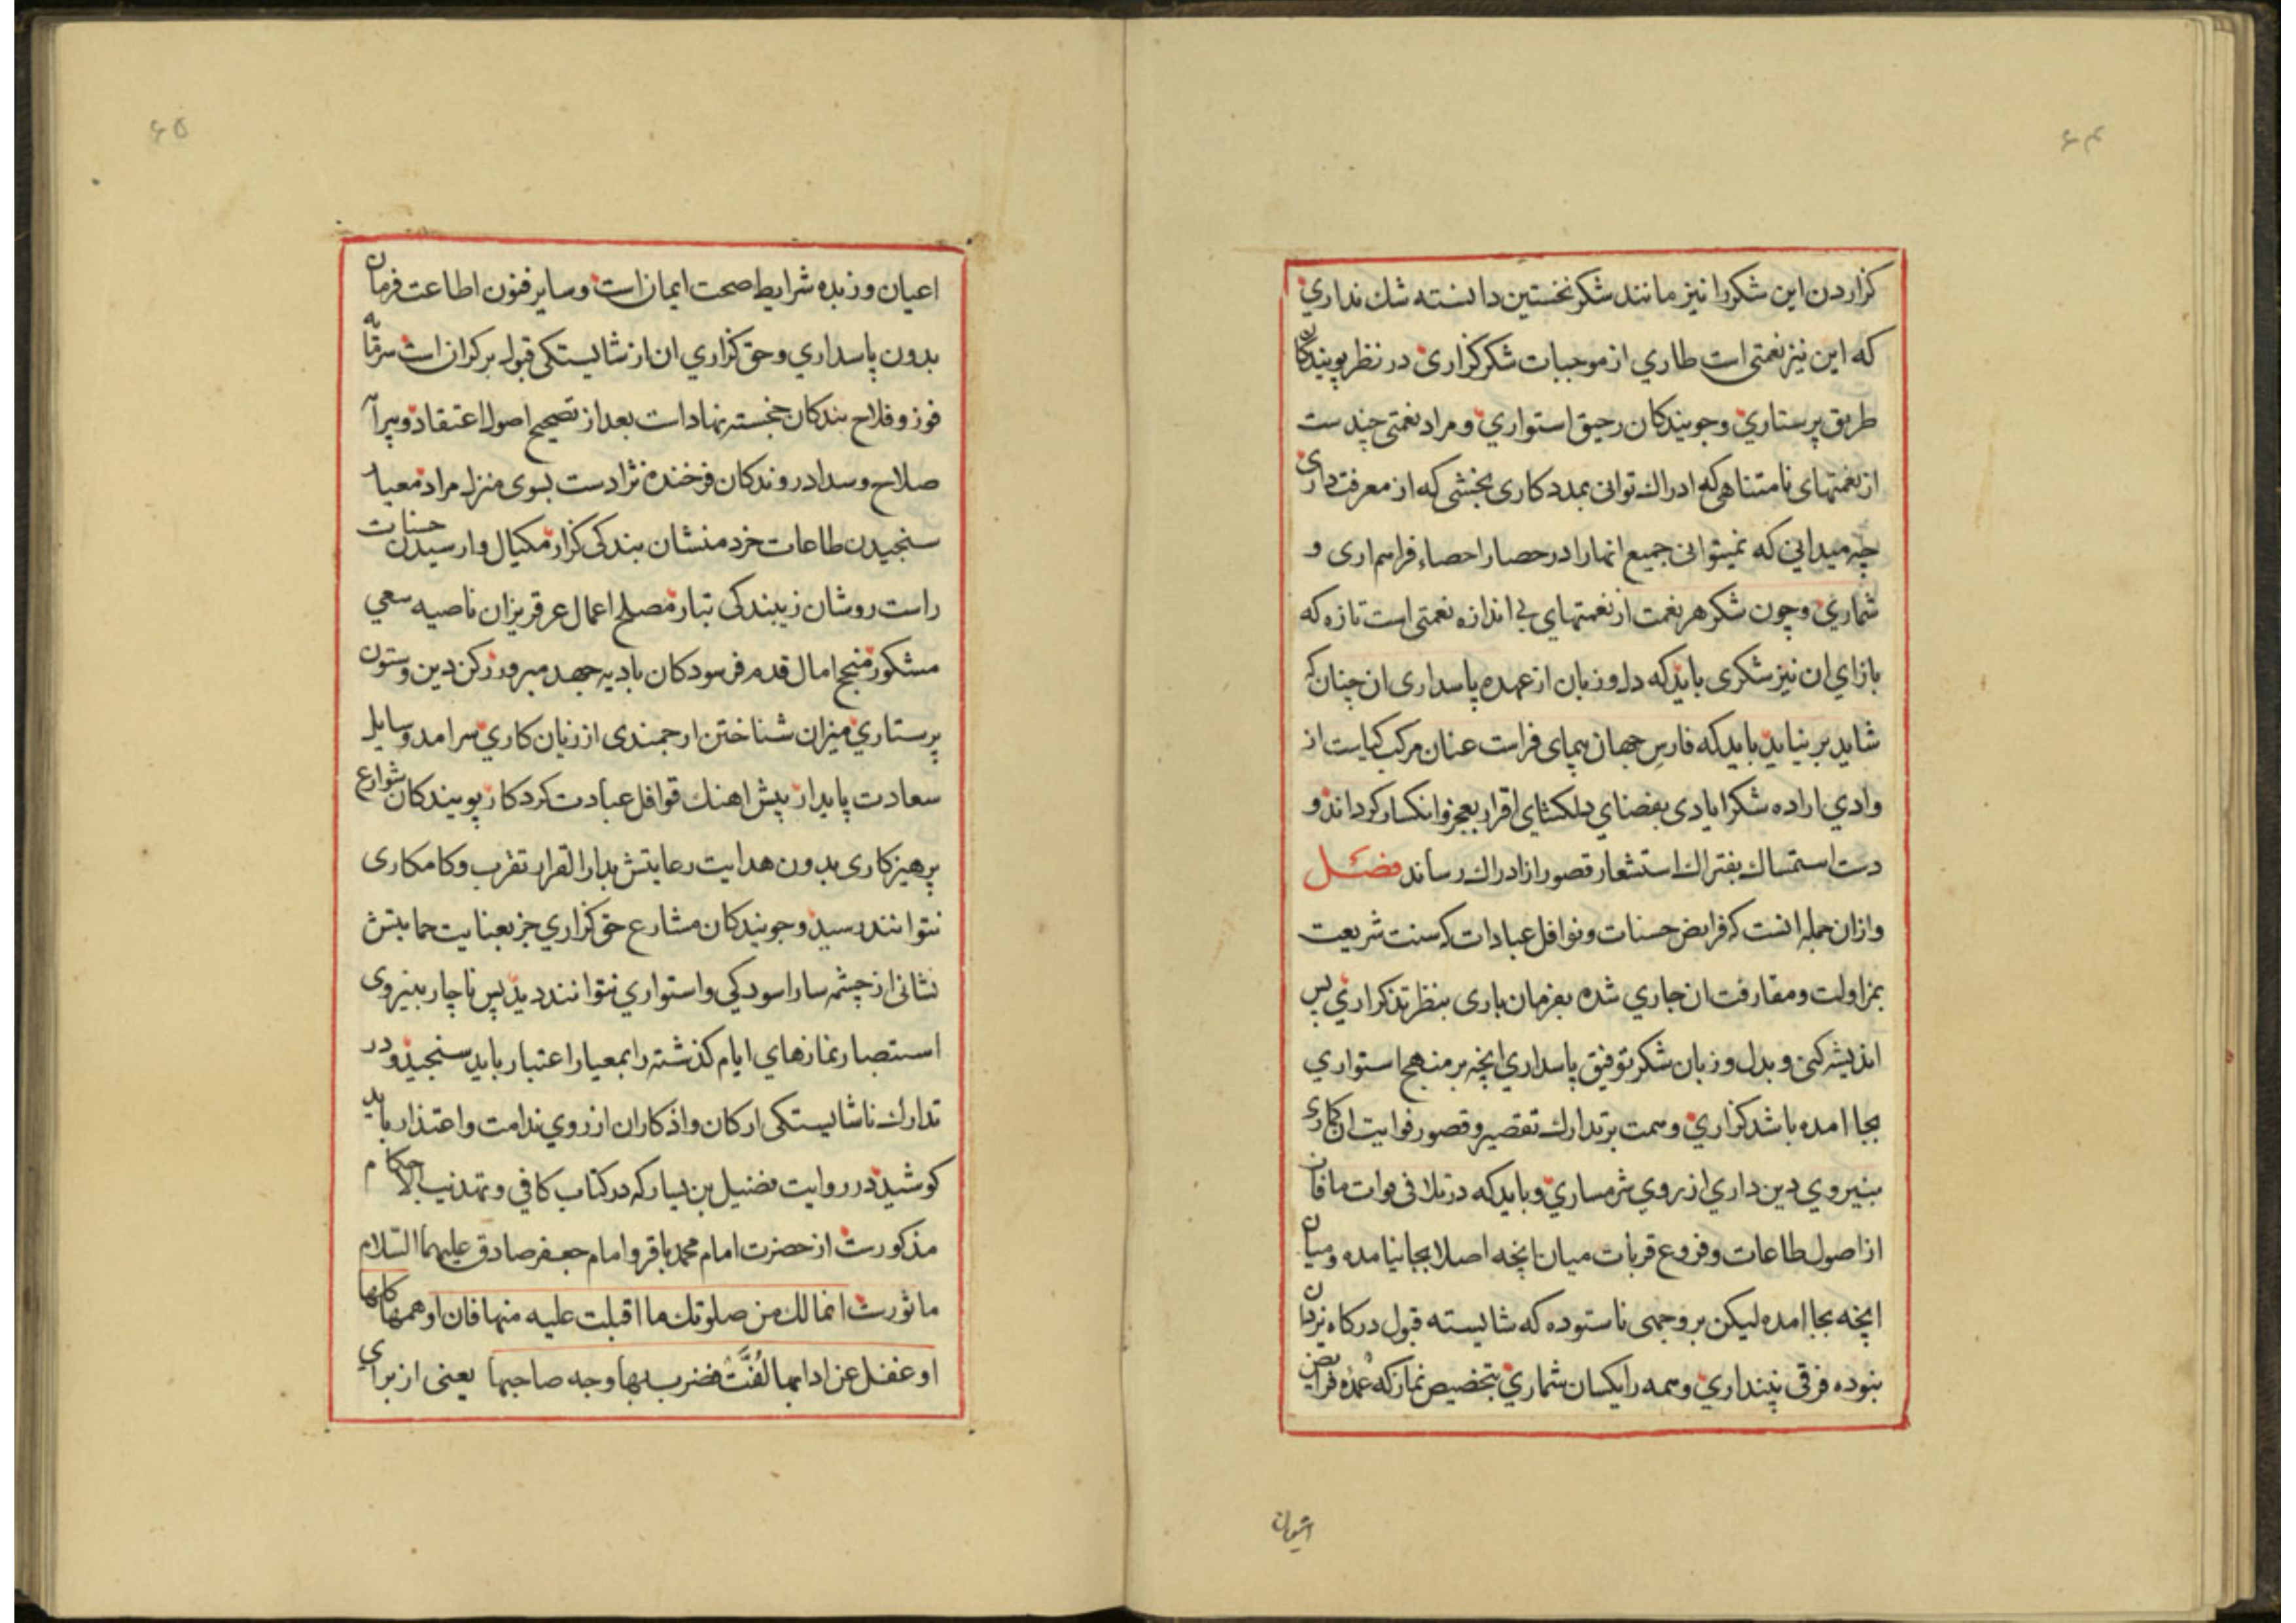 ۶۴
كزاردن اين شكر را نيز مانند شكر نخستين دانسته شك نداري
كه اين نيز نعمتى است طاري از موجبات شكر كزارى در نظر پويندكان
طريق پرستاري وجويندكان رحيق استواري ومراد نعمتى چندست
از نعمتهاى نامتناهى كه ادراك توانى بمددكارى بخششى كه از معرفت دارى
چه ميدانى كه نميتوانى جميع انها را در حصار احصاء فراهم ارى و
شماري وچون شكر هر نعمت از نعمتهاي بى اندازه نعمتى است تازه كه
بازاي ان نيز شكرى بايد كه دل وزبان از عهده پاسدارى ان چنان كه
شايد بر نيايد بايد كه فارس جهان پيماى فراست عنان مركب كياست از
وادي اراده شكر ايادى بفضناي دلكشاى اقرار بعجز وانكسار كرداند و
دست استمساك بفتراك استشعار قصور از ادراك رساند فصل
وازان جمله انست كه فرايض حسنات ونوافل عبادات كه سنت شريعت
بمزاولت ومقارفت ان جاري شده بفرمان بارى بنظر تذكر اري پس
انديشه كنى وبدل وزبان شكر توفيق پاسداري انچه بر منهج استواري
بجا امده باشد كزاري وهمت بر تدارك تقصير وقصور فوايت ان كارى
بنيروي دين داري از روي شرمساري وبايد كه در تلافى فوات مافات
از اصول طاعات وفروع قربات ميان انچه اصلا بجا نيامده وميان
انچه بجا امده ليكن بر وجهى ناستوده كه شايسته قبول دركاه يزدان
بنوده فرقى نپنداري وهمه را يكسان شماري بتخصيص نماز كه عمده فرايض
۶۵
اعيان وزبده شرايط صحت ايمان است وساير فنون اطاعت فرمان
بدون پاسداري وحق كزاري ان از شايستكى قبول بركران است سرمايه
فوز وفلاح بندكان خجسته نهادست بعد از تصحيح اصول اعتقاد وپيرايه
صلاح وسداد روندكان فرخنده نژادست بسوى منزل مراد معيار
سنجيدن طاعات خردمنشان بندكى كزار مكيال وارسيدن حسنات
راست روشان زيبندكى تبار مصلح اعمال عرق ريزان ناصيه سعي
مشكور منجح امال قدم فرسودكان باديه جهد مبرور ركن دين وستون
پرستاري ميزان شناختن ارجمندى از زيان كاري سرامد وسايل
سعادت پايدار پيش اهنك قوافل عبادت كردكار پويندكان شوارع
پرهيزكارى بدون هدايت رعايتش بدار القرار تقرب وكامكارى
نتوانند رسيد وجويندكان مشارع حق كزاري جز بعنايت حمايتش
نشانى از چشمه سار اسودكي واستواري نتوانند ديد پس ناچار بنيروى
استبصار نمازهاي ايام كذشته را بمعيار اعتبار بايد سنجيد ودر
تدارك ناشايستكى اركان واذكار ان از روي ندامت واعتذار بايد
كوشيد در روايت فضيل بن يسار كه در كتاب كافي وتهذيب الاحكام
مذكورست از حضرت امام محمد باقر وامام جعفر صادق عليهما السلام
ماثورست انما لك من صلوتك ما اقبلت عليه منها فان اوهمها كلها
او غفل عن ادابها لُفَّت فضرب بها وجه صاحبها يعنى از براي